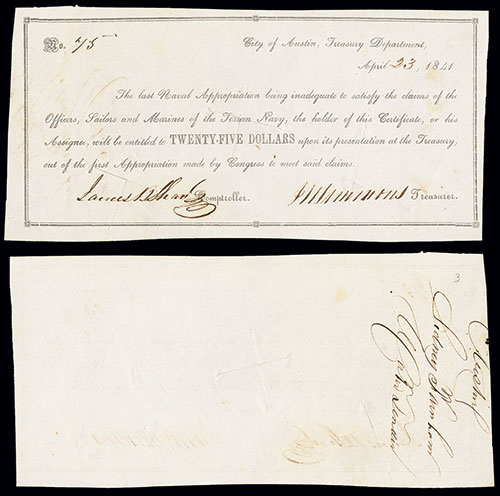 No. 75 City of Austin, Treasury Department,
April 23, 1841
The last Naval Appropriation being inadequate to satisfy the claims of the
Officers, Sailors and Marines of the Texan Navy, the holder of this Certificate, or his
Assignee, will be entitled to TWENTY-FIVE DOLLARS upon its presentation at the Treasury,
out of the first Appropriation made by Congress to meet said claims.
James B Shaw Comptroller. Simmons Treasurer.
3
Sidney